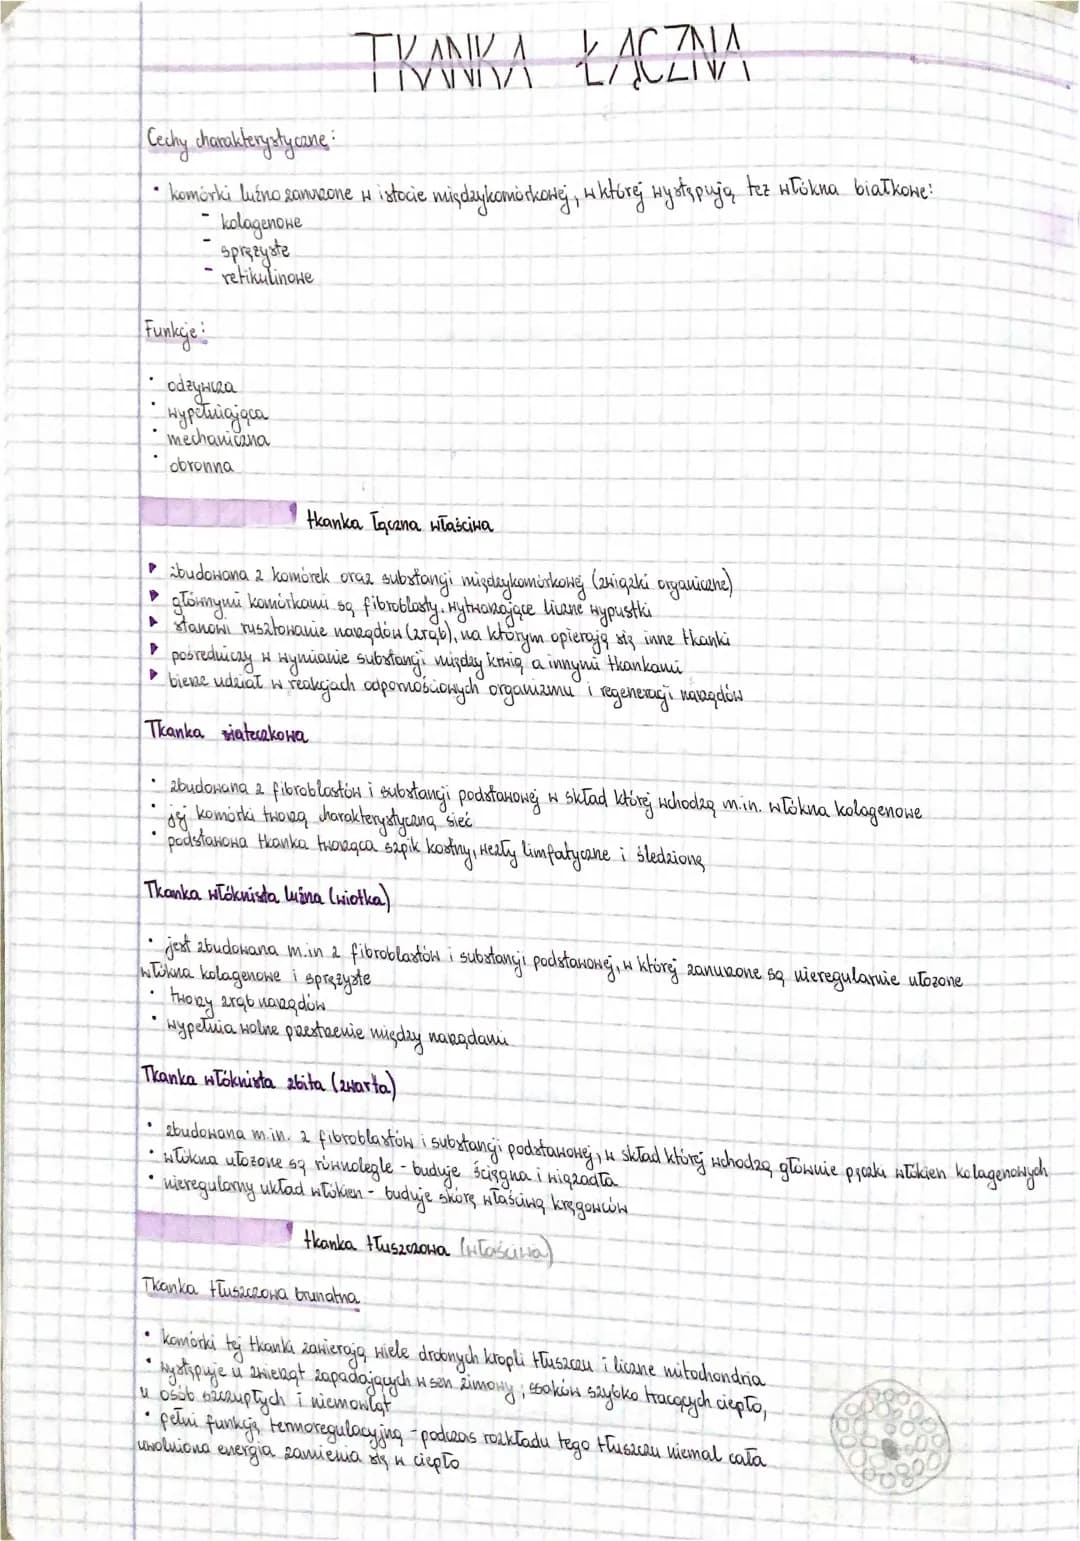 TKANKA ŁĄCZNA
Cechy charakterystyczne:
• komórki luźno zanurzone w istocie międzykomórkowej, w której występują też włókna białkowe:
- kolagenowe
- sprężyste
- retikulinowe
Funkcje:
• odżywcza
• wypełniająca
• mechaniczna
• obronna
tkanka łączna właściwa
▶ zbudowana z komórek oraz substancji międzykomórkowej (związki organiczne)
▶ głównymi komórkami są fibroblasty, wytwarzające liczne wypustki
▶ stanowi rusztowanie narządów (zrąb), na którym opierają się inne tkanki
▶ pośredniczy w wymianie substancji między krwią a innymi tkankami
▶ bierze udział w reakcjach odpornościowych organizmu i regeneracji narządów
Tkanka siateczkowa
• zbudowana z fibroblastów i substancji podstawowej w skład której wchodzą m.in. włókna kolagenowe
• jej komórki tworzą charakterystyczną sieć
• podstawowa tkanka tworząca szpik kostny, węzły limfatyczne i śledzionę
Tkanka włóknista luźna (wiotka)
• jest zbudowana m.in z fibroblastów i substancji podstawowej, w której zanurzone są nieregularnie ułożone
włókna kolagenowe i sprężyste
• tworzy zrąb narządów
• wypełnia wolne przestrzenie między narządami
Tkanka włóknista zbita (zwarta)
• zbudowana m.in. z fibroblastów i substancji podstawowej, w skład której wchodzą głównie pęczki włókien kolagenowych
• włókna ułożone są równolegle - buduje ścięgna i więzadła
• nieregularny układ włókien - buduje skórę właściwą kręgowców
tkanka tłuszczowa (właściwa)
Tkanka tłuszczowa brunatna
• komórki tej tkanki zawierają wiele drobnych kropli tłuszczu i liczne mitochondria
• występuje u zwierząt zapadających w sen zimowy, ssaków szybko tracących ciepło,
u osób szczupłych i niemowląt
• pełni funkcję termoregulacyjną - podczas rozkładu tego tłuszczu niemal cała
uwolniona energia zamienia się w ciepło